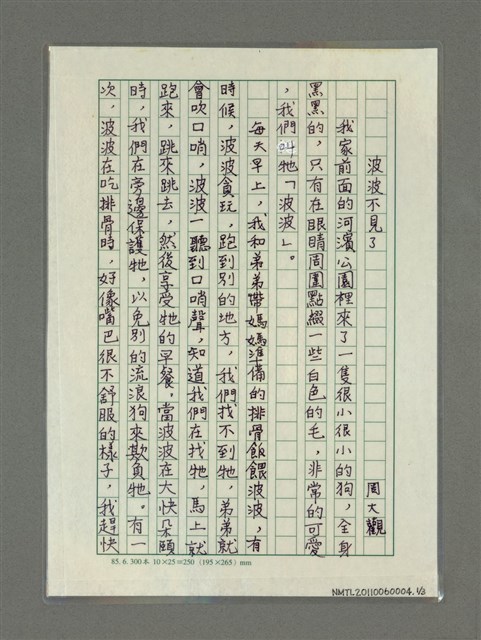 波波不見了
周大觀
我家前面的河濱公園裡來了一隻很小很小的狗，全身
黑黑的，只有在眼睛周圍點綴一些白色的毛，非常的可愛
，我們叫牠「波波」。
每天早上，我和弟弟帶媽媽準備的排骨飯餵波波，有
時候，波波貪玩，跑到別的地方，我們找不到牠，弟弟就
會吹口哨，波波一聽到口哨聲，知道我們在找牠，馬上就
跑來，跳來跳去，然後享受牠的早餐，當波波在大快朵頤
時，我們在旁邊保護牠，以免別的流浪狗來欺負牠。有一
次，波波在吃排骨時，好像嘴巴很不舒服的樣子，我趕快
85.6.300本 10×25=250 (195×265) mm
NMTL20110060004.1/3